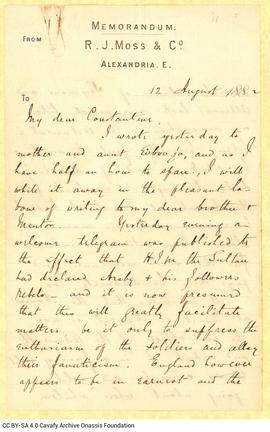 MEMORANDUM.
FROM
R. J. MOSS & Co
ALEXANDRIA. E.
12 August 1882
TO
My dear Constantine,
I wrote yesterday to
mother and aunt and as I
have half an hour to spare, I will
while it away in the pleasant la-
bour of writing to my dear brother &
Mentor. Yesterday evening a
welcome telegram was published to
the effect that H.I.M. the Sultan
had declared Araby & his followers
rebels - and it is now presumed
that this will greatly facilitate
matters, be it only to suppress the
enthusiasm of the soldiers and allay
their fanaticism. England however
appears to be in earnest and the
CC BY-SA 4.0 Cavafy Archive Onassis Foundation